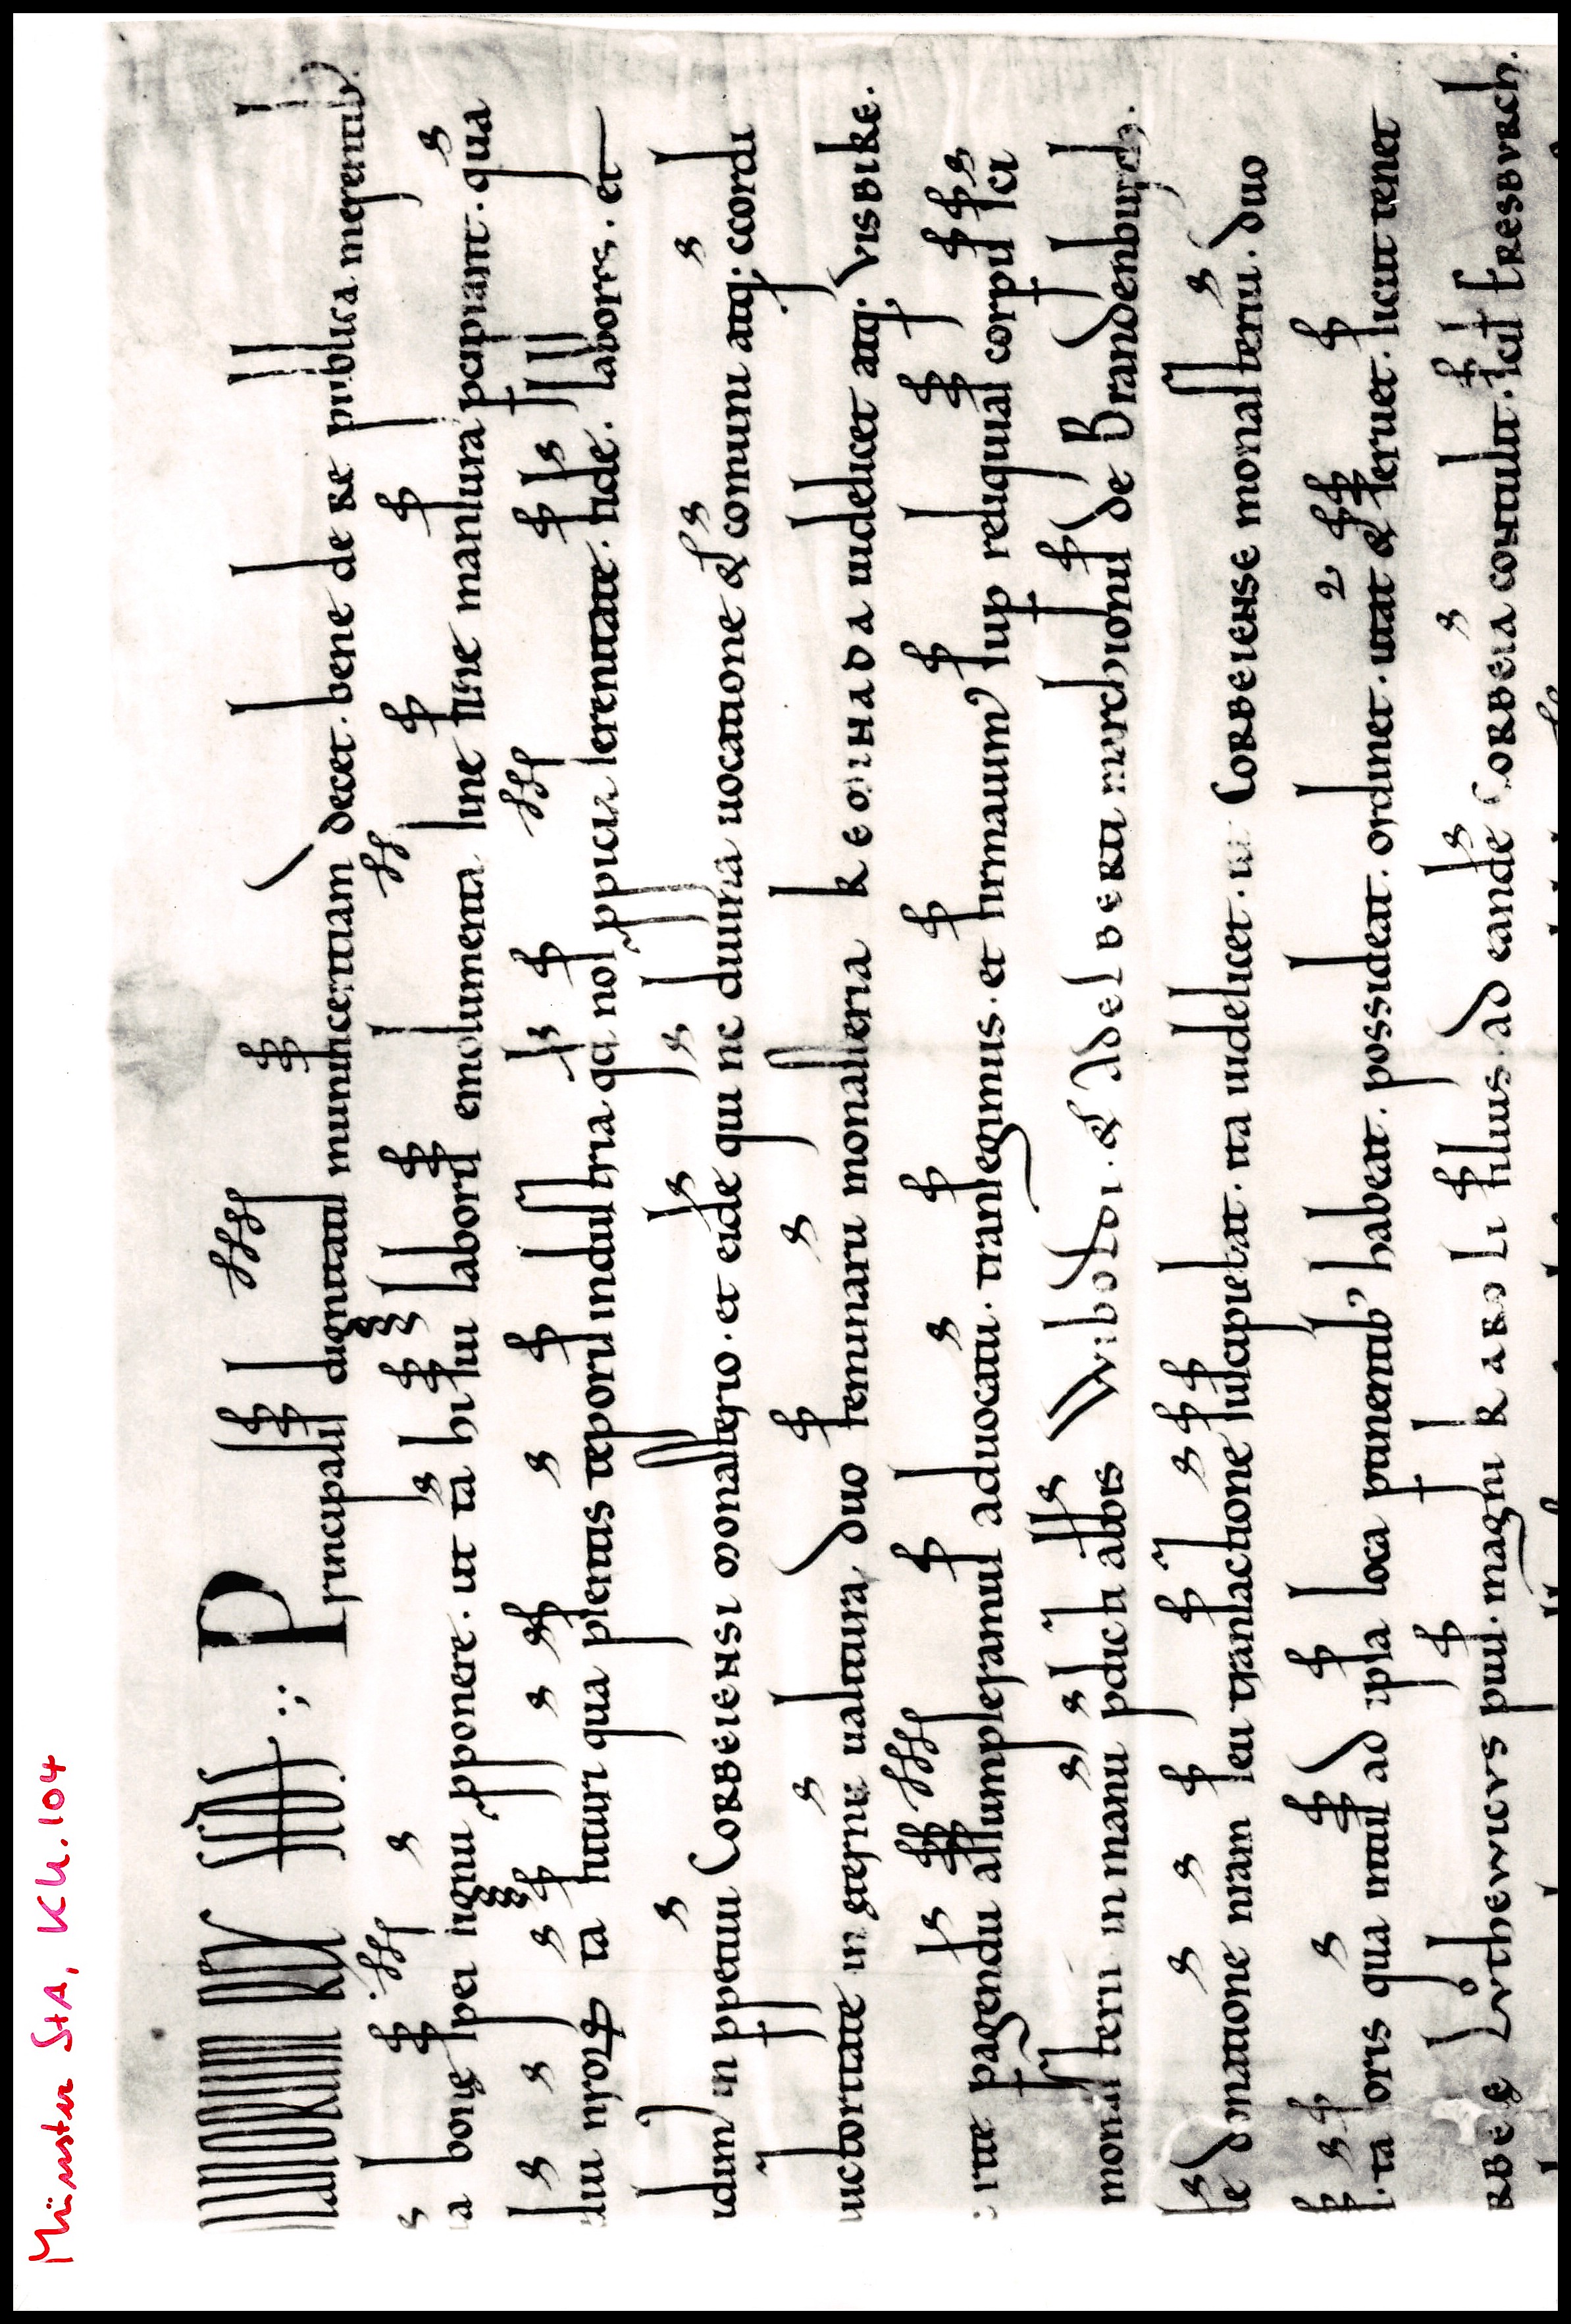 Münster StA, KU.104
manorum rex II : Principalis dignitatis munificentiam decet. bene de re publica merentib'
a bonę spei signū ꝓponere. ut tā hi sui laboris emolumenta sine fine mansura pcipiant. quā
sui nr̄oꝝ tā futuri quā p̄sentis tēporis industria qd nos ꝓpicia serenitate. fide. labores. et
in ppetuū CORBEIENSI monasterio. et eidē qui nc̄ diuina uocatione & cōmuni atq; cōcordi
uctoritate in ualitura, duo feminarū monasteria KEMINADA uidelicet atq; VISBIKE.
rite pagendū assumpseramus aduocati. transegimus. et firmauim' sup reliquias corpis sci
monasterii in manu p̄dicti abb̄tis Wiboldi. & Adelberti marchionis de Brandenburch.
donationē nr̄am seu transactionē suscipiebat. ita uidelicet. ut CORBEIENSE monasteriū. duo
tā foris quā intus ad ipsa loca ptinentib' habeat. possideat. ordinet. utat & seruet. sicut tenet
RBEĘ LVTHEWICVS pius. magni KAROLI filius. ad eandē CORBEIA contulit. scil ERESBVRCH.